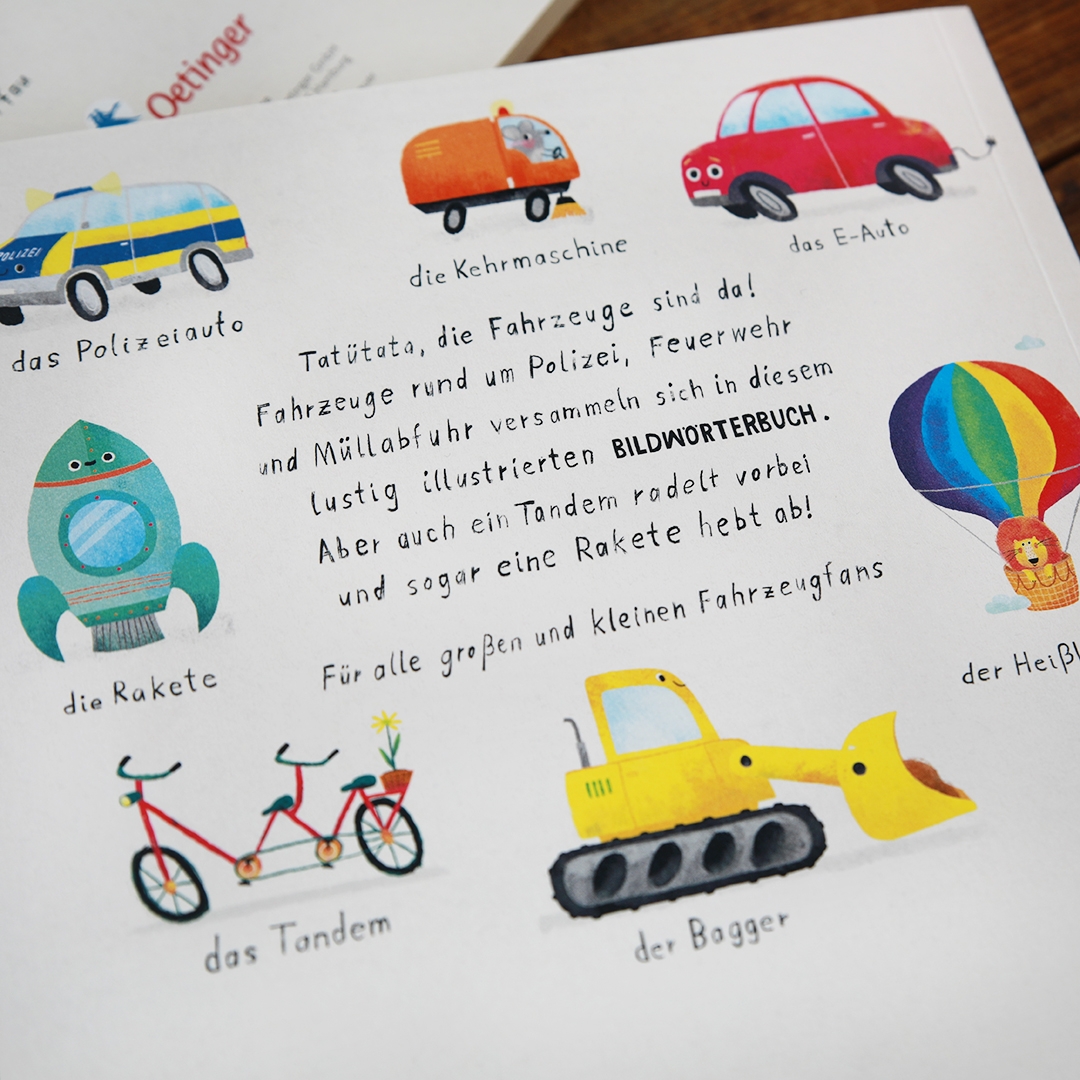 Oetinger
POLIZEI
die Kehrmaschine
das E-Auto
das Polizeiauto
Tatütata, die Fahrzeuge sind da!
Fahrzeuge rund um Polizei, Feuerwehr
und Müllabfuhr versammeln sich in diesem
lustig illustrierten BILDWÖRTERBUCH.
Aber auch ein Tandem radelt vorbei
und sogar eine Rakete hebt ab!
Für alle großen und kleinen Fahrzeugfans
die Rakete
der
das Tandem
der Bagger